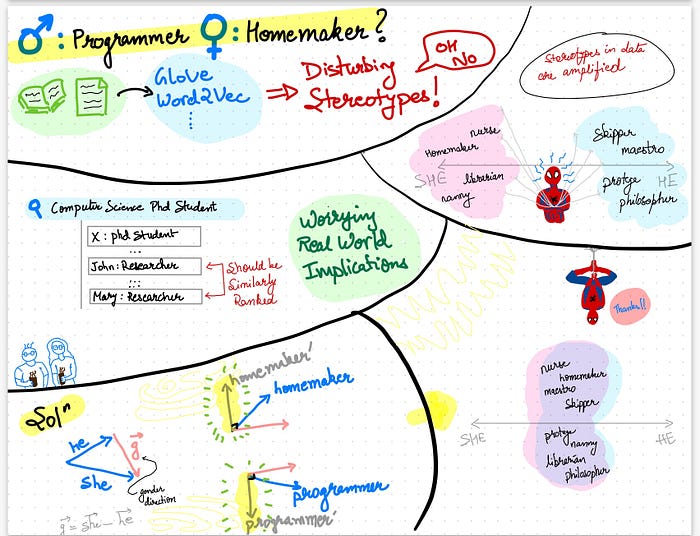 ♂: Programmer ♀: Homemaker?
GloVe
Word2Vec
⋮
⇒ Disturbing
Stereotypes!
OH
NO
Stereotypes in data
are amplified
nurse
Homemaker
librarian
nanny
SHE
HE
Skipper
maestro
protege
philosopher
Computer Science Phd Student
X: phd Student
...
John: Researcher
...
Mary: Researcher
Should be
Similarly
Ranked
Worrying
Real World
Implications
Thanks!!
Solⁿ
he
she
g
gender
direction
g = she - he
homemaker'
homemaker
programmer
programmer'
nurse
homemaker
maestro
Skipper
SHE
HE
protege
nanny
librarian
philosopher